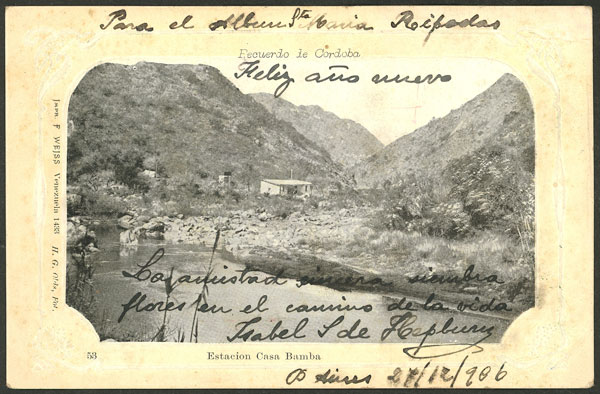 Para el Album Sta Maria Ripodas
Recuerdo de Córdoba
Feliz año nuevo
Juan F WEISS Venezuela 1433 H. G. Olds, Fot.
La amistad sincera siembra
flores en el camino de la vida
Isabel S de Hepburn
53
Estacion Casa Bamba
B Aires 27/12/906